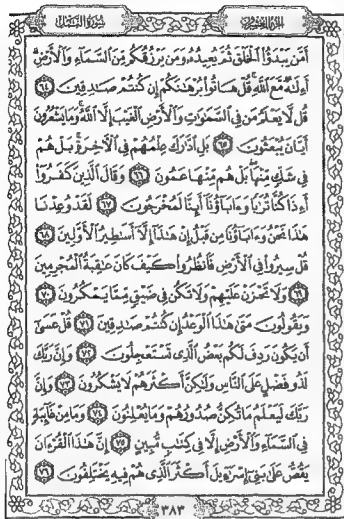 الجزء العشرون سورة النمل
أَمَّن يَبْدَؤُا۟ ٱلْخَلْقَ ثُمَّ يُعِيدُهُۥ وَمَن يَرْزُقُكُم مِّنَ ٱلسَّمَآءِ وَٱلْأَرْضِ ۗ
أَءِلَـٰهٌ مَّعَ ٱللَّهِ ۚ قُلْ هَاتُوا۟ بُرْهَـٰنَكُمْ إِن كُنتُمْ صَـٰدِقِينَ ٦٤
قُل لَّا يَعْلَمُ مَن فِى ٱلسَّمَـٰوَٰتِ وَٱلْأَرْضِ ٱلْغَيْبَ إِلَّا ٱللَّهُ ۚ وَمَا يَشْعُرُونَ
أَيَّانَ يُبْعَثُونَ ٦٥ بَلِ ٱدَّٰرَكَ عِلْمُهُمْ فِى ٱلْـَٔاخِرَةِ ۚ بَلْ هُمْ
فِى شَكٍّ مِّنْهَا ۖ بَلْ هُم مِّنْهَا عَمُونَ ٦٦ وَقَالَ ٱلَّذِينَ كَفَرُوٓا۟
أَءِذَا كُنَّا تُرَٰبًا وَءَابَآؤُنَآ أَئِنَّا لَمُخْرَجُونَ ٦٧ لَقَدْ وُعِدْنَا
هَـٰذَا نَحْنُ وَءَابَآؤُنَا مِن قَبْلُ إِنْ هَـٰذَآ إِلَّآ أَسَـٰطِيرُ ٱلْأَوَّلِينَ ٦٨
قُلْ سِيرُوا۟ فِى ٱلْأَرْضِ فَٱنظُرُوا۟ كَيْفَ كَانَ عَـٰقِبَةُ ٱلْمُجْرِمِينَ
٦٩ وَلَا تَحْزَنْ عَلَيْهِمْ وَلَا تَكُن فِى ضَيْقٍ مِّمَّا يَمْكُرُونَ ٧٠
وَيَقُولُونَ مَتَىٰ هَـٰذَا ٱلْوَعْدُ إِن كُنتُمْ صَـٰدِقِينَ ٧١ قُلْ عَسَىٰٓ
أَن يَكُونَ رَدِفَ لَكُم بَعْضُ ٱلَّذِى تَسْتَعْجِلُونَ ٧٢ وَإِنَّ رَبَّكَ
لَذُو فَضْلٍ عَلَى ٱلنَّاسِ وَلَـٰكِنَّ أَكْثَرَهُمْ لَا يَشْكُرُونَ ٧٣ وَإِنَّ
رَبَّكَ لَيَعْلَمُ مَا تُكِنُّ صُدُورُهُمْ وَمَا يُعْلِنُونَ ٧٤ وَمَا مِنْ غَآئِبَةٍ
فِى ٱلسَّمَآءِ وَٱلْأَرْضِ إِلَّا فِى كِتَـٰبٍ مُّبِينٍ ٧٥ إِنَّ هَـٰذَا ٱلْقُرْءَانَ
يَقُصُّ عَلَىٰ بَنِىٓ إِسْرَٰٓءِيلَ أَكْثَرَ ٱلَّذِى هُمْ فِيهِ يَخْتَلِفُونَ ٧٦
٣٨٣